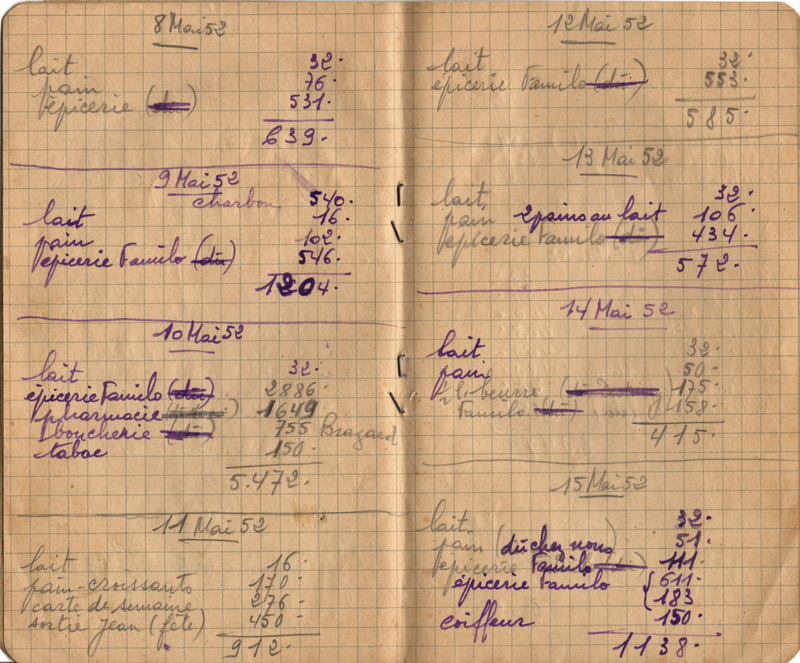 8 Mai 52
lait 32.
pain 76.
épicerie (dû) 531.
639.
9 Mai 52
charbon 540.
lait 16.
pain 102.
épicerie Familo (dû) 546.
1204.
10 Mai 52
lait 32.
épicerie Familo (dû) 2886.
pharmacie 1649
boucherie (dû) 755 Bragard
tabac 150.
5.472.
11 Mai 52
lait 16.
pain-croissants 170.
carte de semaine 276.
sortie Jean (fête) 450.
912.
12 Mai 52
lait 32.
épicerie Familo (dû) 553.
585.
13 Mai 52
lait 32.
pain 2 pains au lait 106.
épicerie Familo (dû) 434.
572.
14 Mai 52
lait 32.
pain 50.
beurre 175.
Familo (dû) 158.
415.
15 Mai 52
lait 32.
pain (dû chez nous) 51.
épicerie Familo 111.
épicerie Familo { 611.
183
coiffeur 150.
1138.